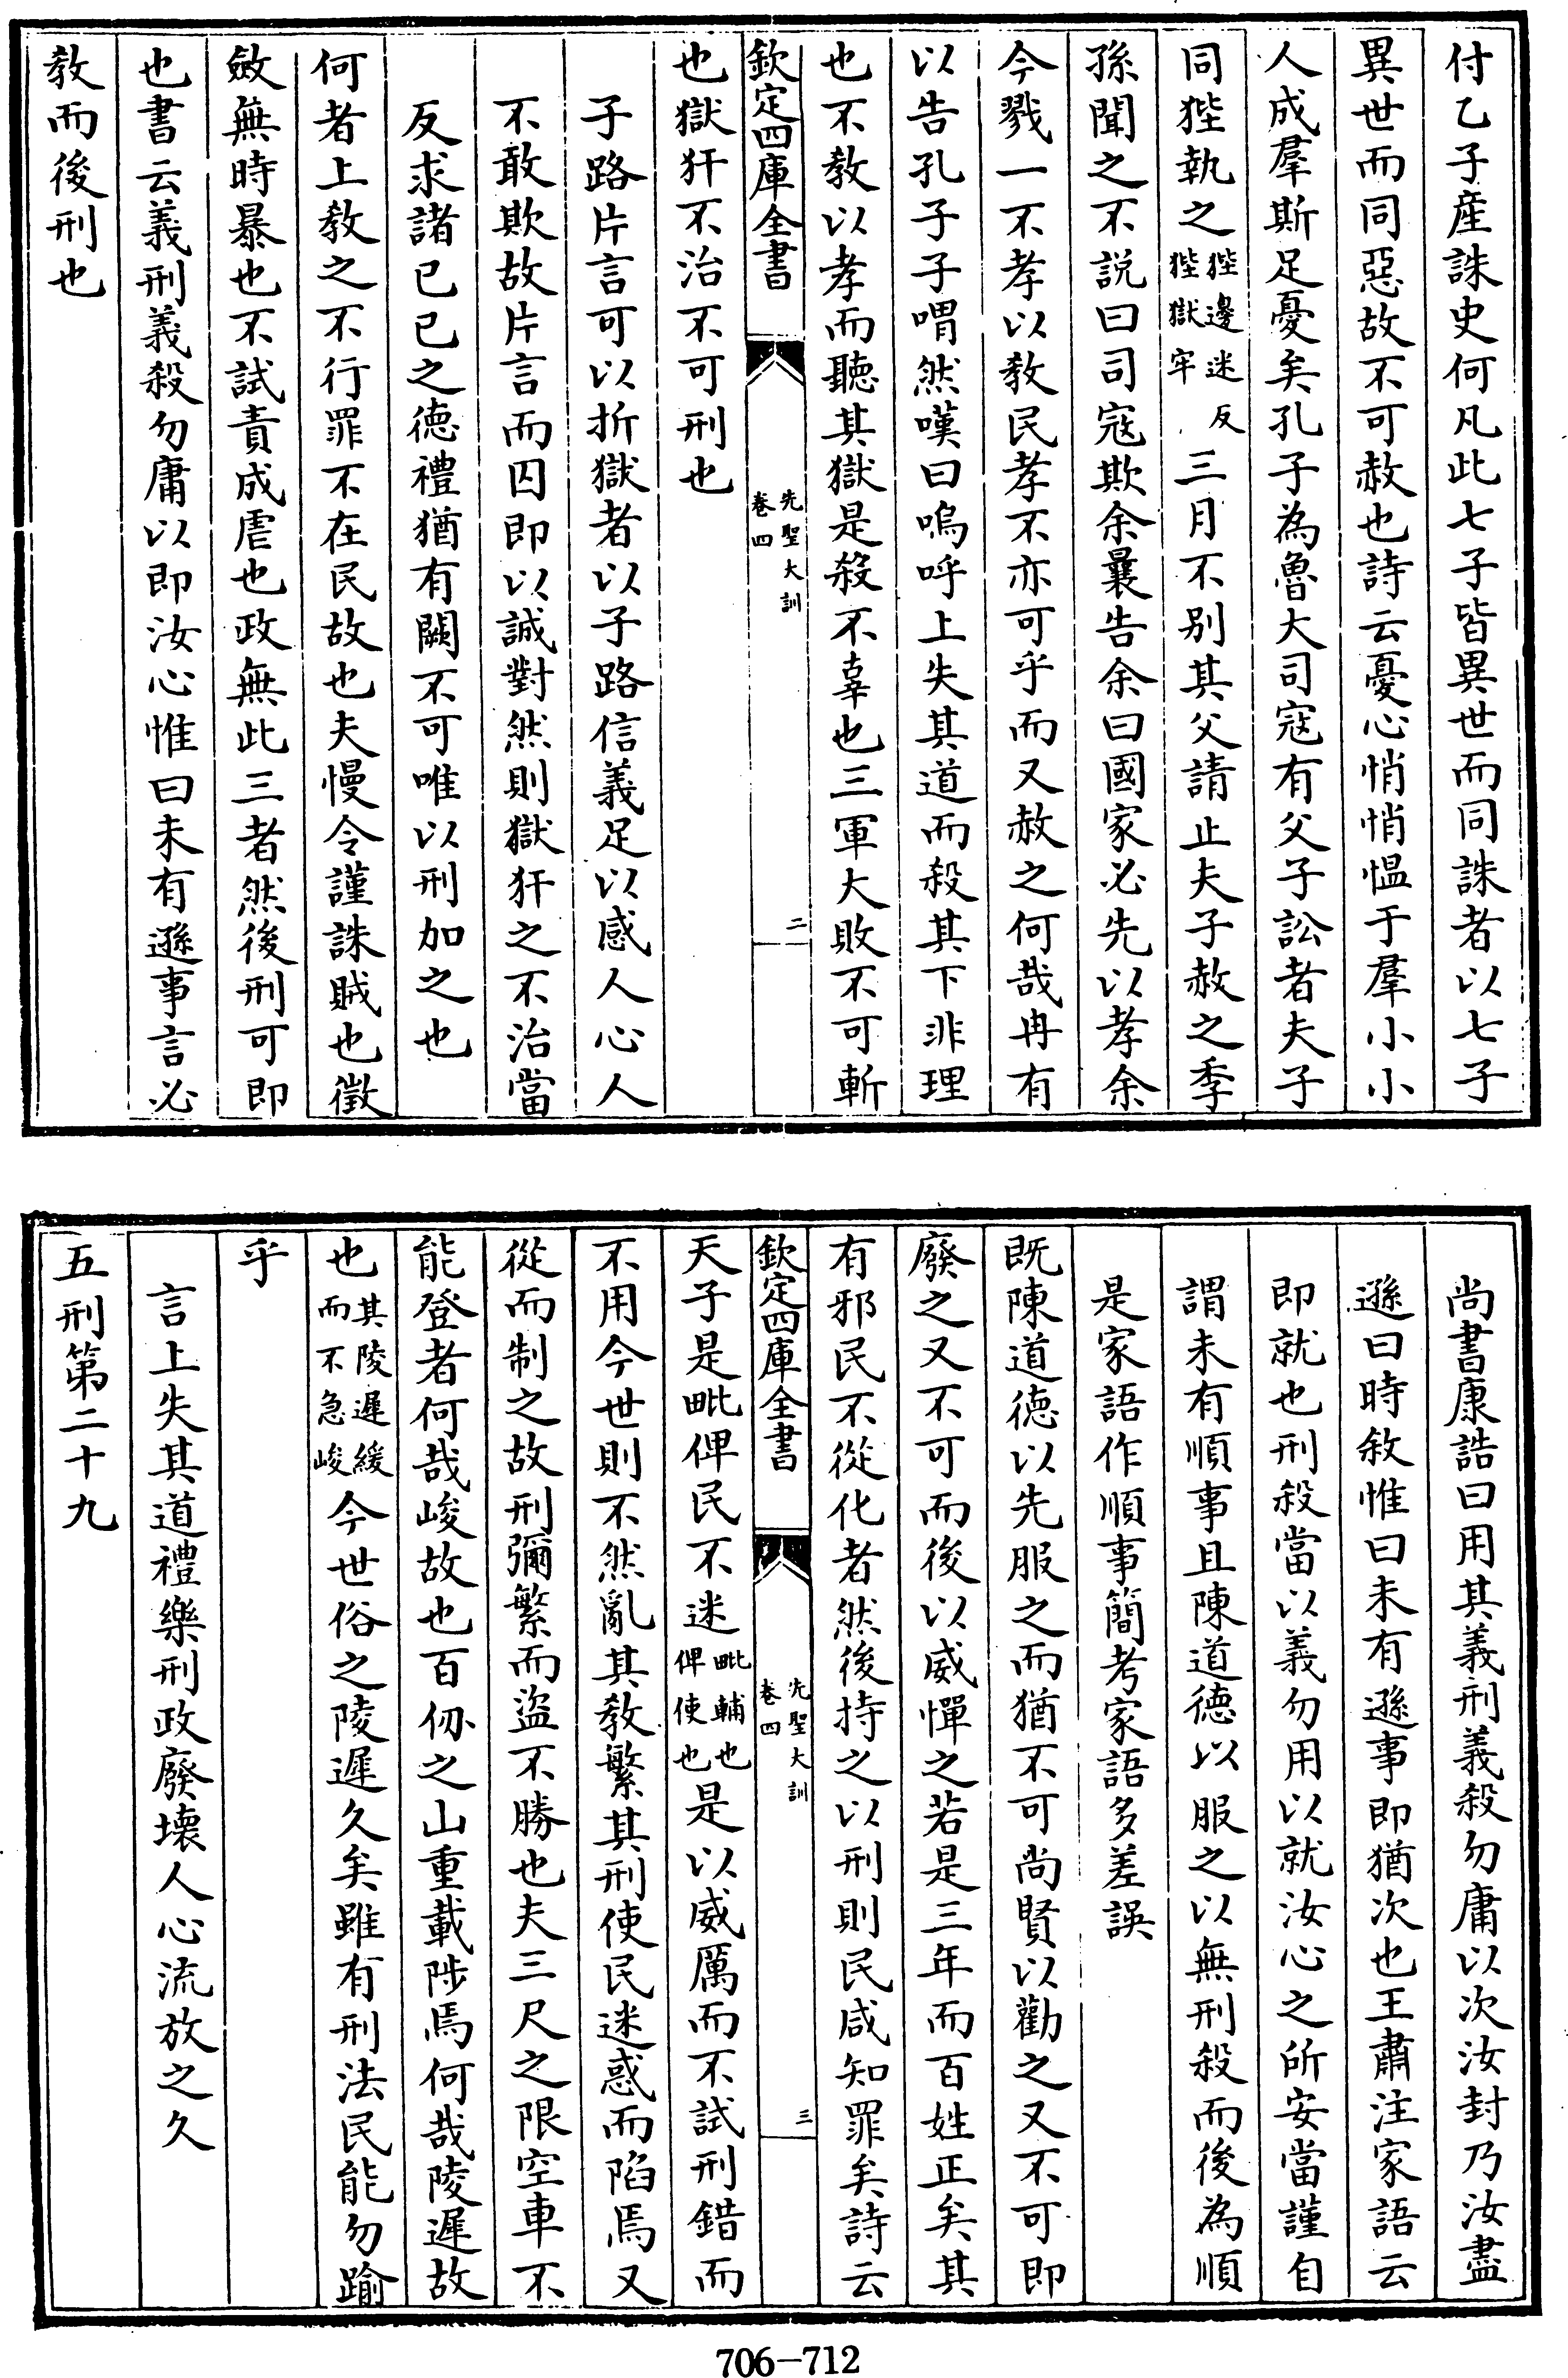 付乙子産誅史何凡此七子皆異世而同誅者以七子
異世而同惡故不可赦也詩云憂心悄悄愠于羣小小
人成羣斯足憂矣孔子為魯大司寇有父子訟者夫子
同狴執之狴邊迷反狴獄牢三月不别其父請止夫子赦之季
孫聞之不説曰司寇欺余曩告余曰國家必先以孝余
今戮一不孝以教民孝不亦可乎而又赦之何哉冉有
以告孔子子喟然嘆曰嗚呼上失其道而殺其下非理
也不教以孝而聽其獄是殺不辜也三軍大敗不可斬
欽定四庫全書
先聖大訓
卷四
二
也獄犴不治不可刑也
子路片言可以折獄者以子路信義足以感人心人
不敢欺故片言而囚即以誠對然則獄犴之不治當
反求諸已已之德禮猶有闕不可唯以刑加之也
何者上教之不行罪不在民故也夫慢令謹誅賊也徵
斂無時暴也不試責成虐也政無此三者然後刑可即
也書云義刑義殺勿庸以即汝心惟曰未有遜事言必
教而後刑也
尚書康誥曰用其義刑義殺勿庸以次汝封乃汝盡
遜曰時敘惟曰未有遜事即猶次也王肅注家語云
即就也刑殺當以義勿用以就汝心之所安當謹自
謂未有順事且陳道德以服之以無刑殺而後為順
是家語作順事簡考家語多差誤
既陳道徳以先服之而猶不可尚賢以勸之又不可即
廢之又不可而後以威憚之若是三年而百姓正矣其
有邪民不從化者然後持之以刑則民咸知罪矣詩云
欽定四庫全書
先聖大訓
卷四
三
天子是毗俾民不迷毗輔也俾使也是以威厲而不試刑錯而
不用今世則不然亂其教繁其刑使民迷惑而陷焉又
從而制之故刑彌繁而盜不勝也夫三尺之限空車不
能登者何哉峻故也百仭之山重載陟焉何哉陵遲故
也其陵遲緩而不急峻今世俗之陵遲久矣雖有刑法民能勿踰
乎
言上失其道禮樂刑政廢壞人心流放之久
五刑第二十九
706-712